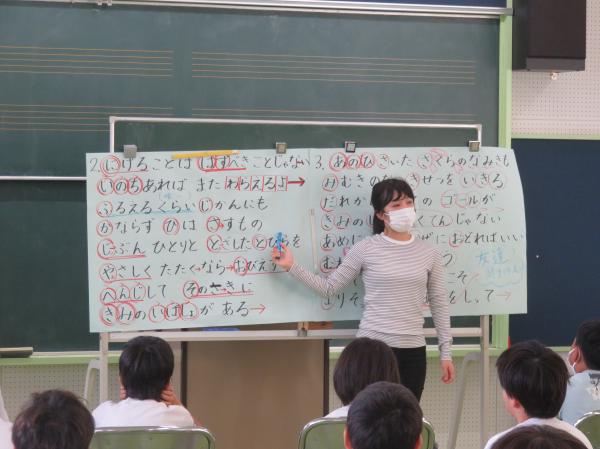 2. にげることは はずべきことじゃない
いのちあれば また わらえるよ→
ふるえるくらい じかんにも
かならず ひは さすもの
じぶん ひとりと とざしたとびらを
やさしく たたくなら→おびえ
へんじして そのさきに
きみのいばしょが ある→
3. あのひ さいた さくらのなみきも
みむきの きせつを いきる
だれか の ゴールが
きみの くてんじゃない
あめに ぜに おどればいい
む う
こそ
よりそ をして→
友達